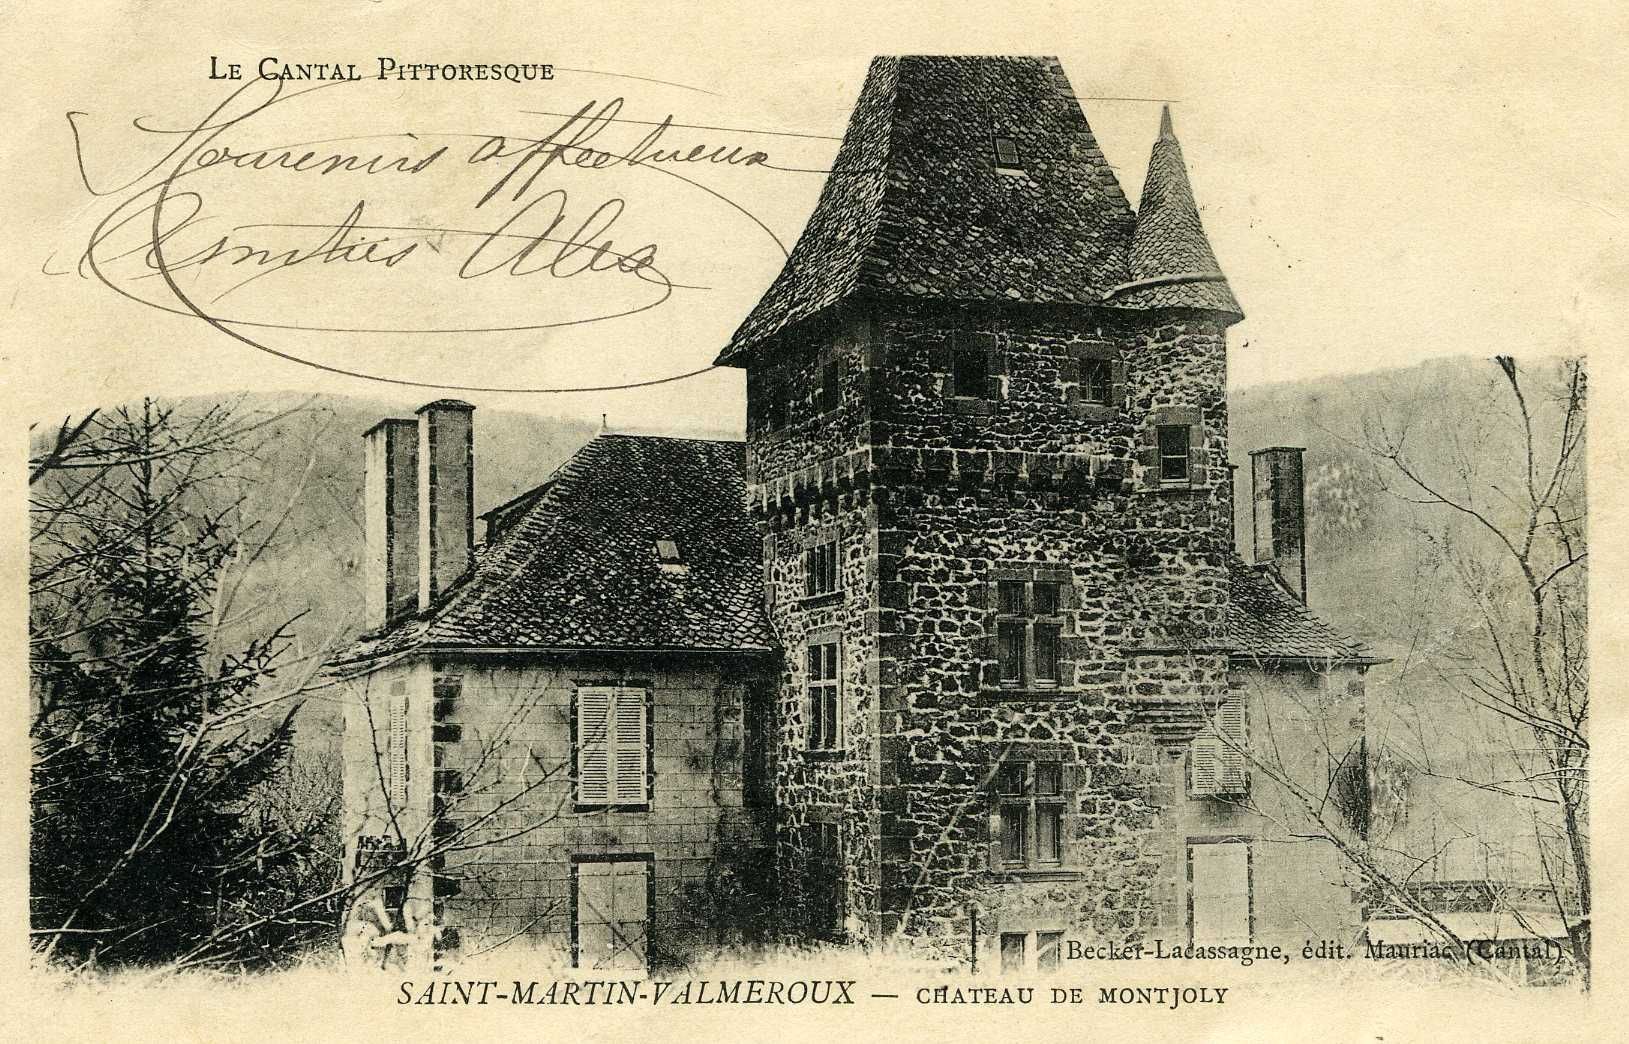 LE CANTAL PITTORESQUE
Souvenirs affectueux
Amitiés Alex
Becker-Lacassagne, édit. Mauriac (Cantal)
SAINT-MARTIN-VALMEROUX — CHATEAU DE MONTJOLY